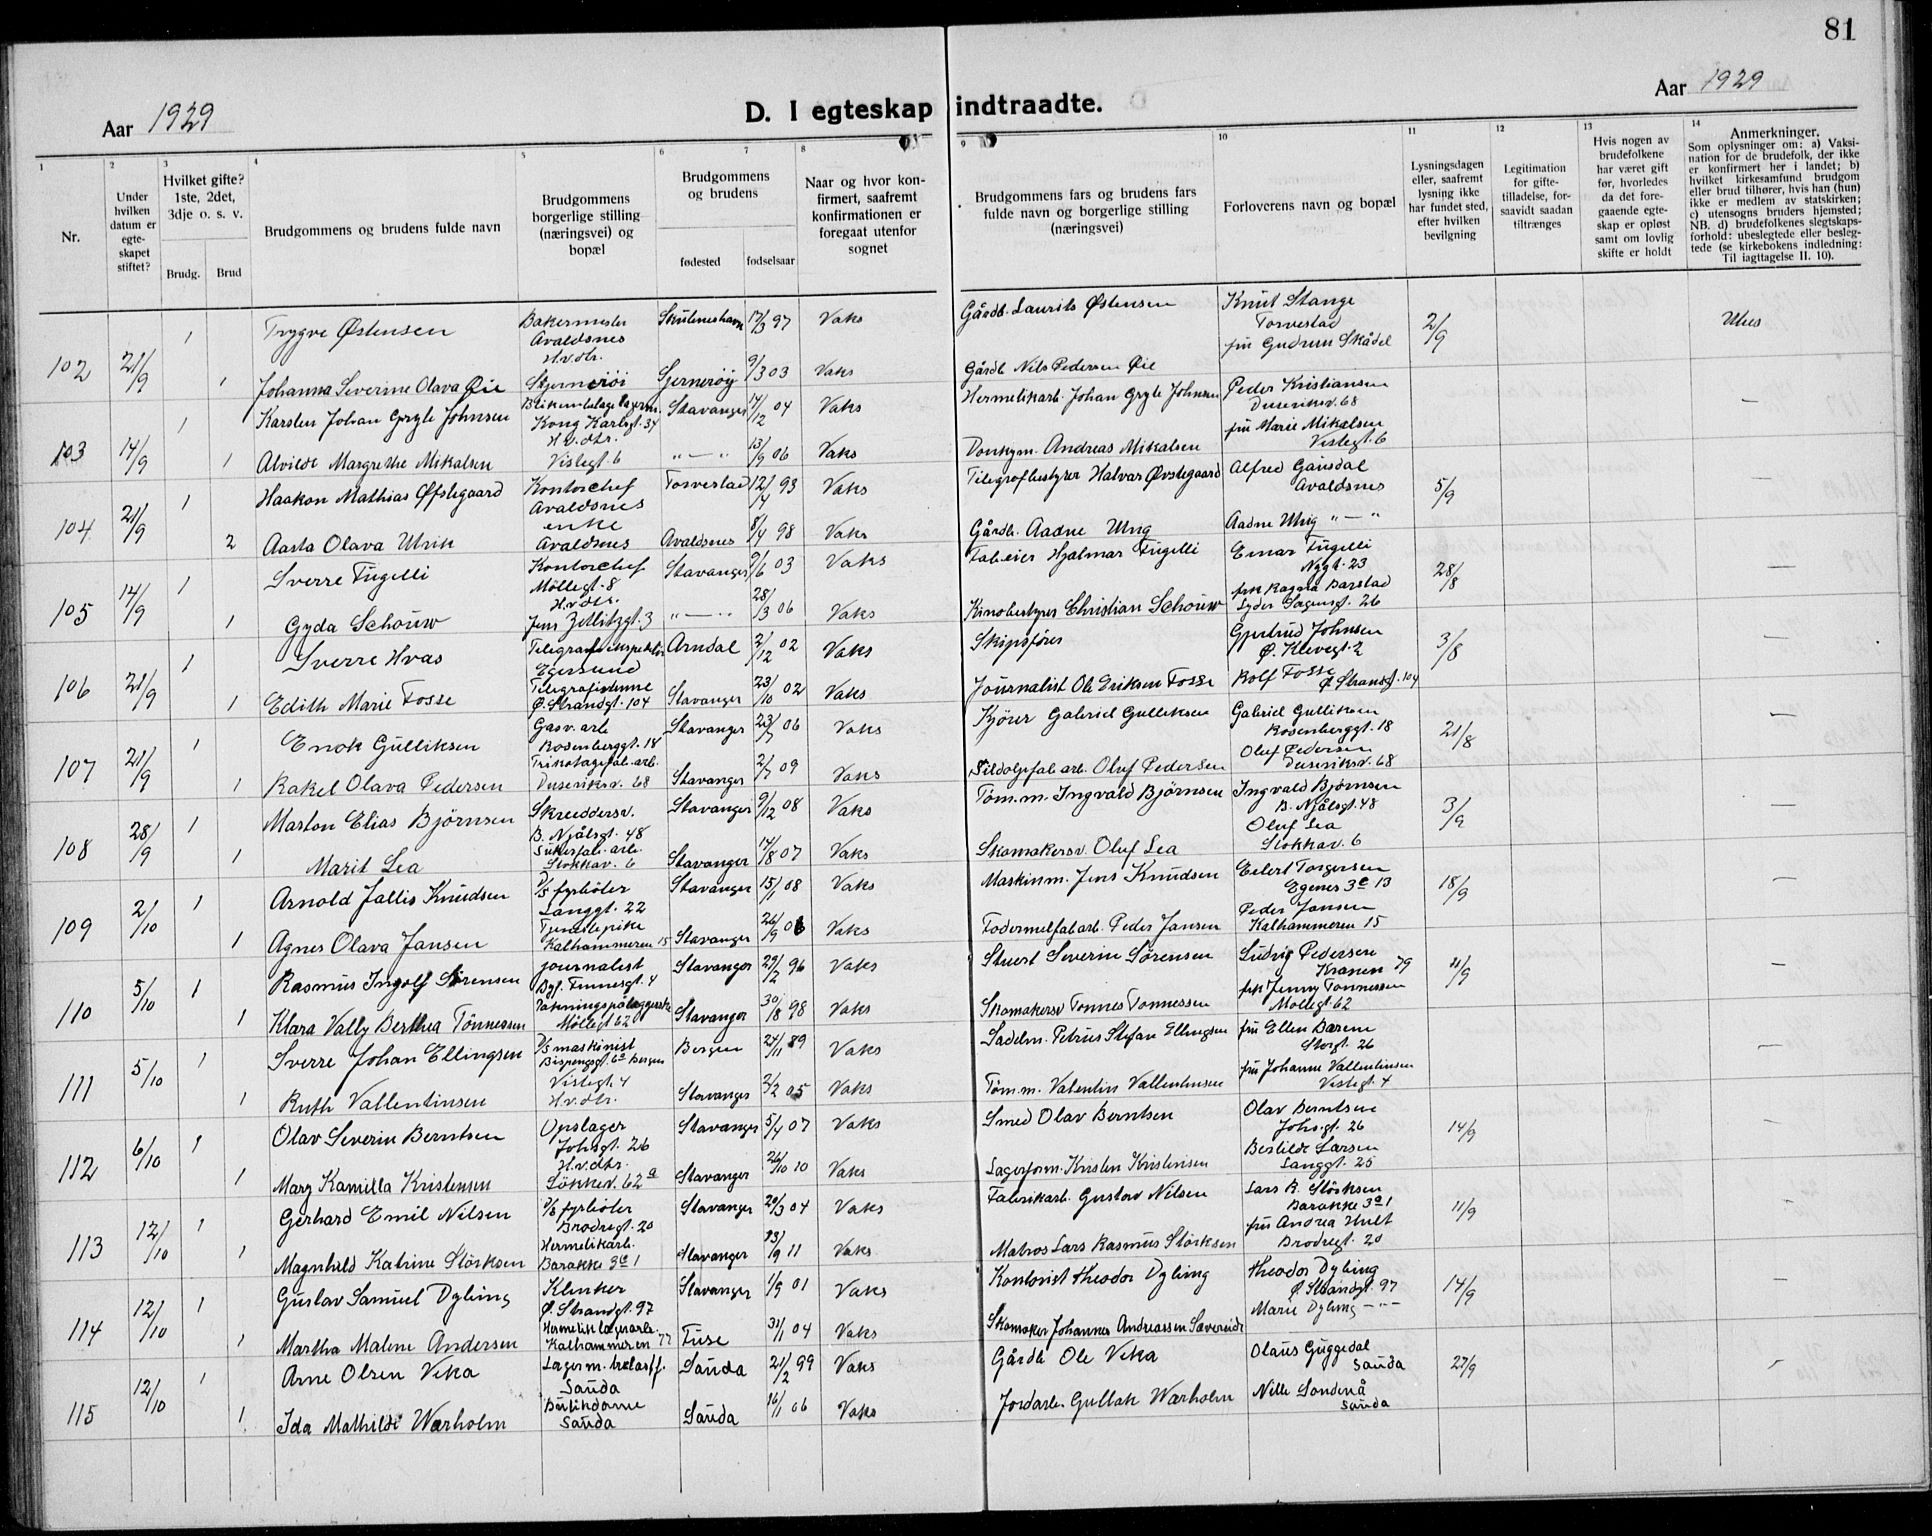 81
Aar 1929
D. I egteskap indtraadte.
Aar 1929
1 2 3 4 5 6 7 8 9 10 11 12 13 14
Nr.
Under hvilken datum er egteskapet stiftet?
Hvilket gifte? 1ste, 2det, 3dje o. s. v.
Brudg. Brud
Brudgommens og brudens fulde navn
Brudgommens borgerlige stilling (næringsvei) og bopæl
Brudgommens og brudens
fødested fødselsaar
Naar og hvor konfirmert, saafremt konfirmationen er foregaat utenfor sognet
Brudgommens fars og brudens fars fulde navn og borgerlige stilling (næringsvei)
Forloverens navn og bopæl
Lysningsdagen eller, saafremt lysning ikke har fundet sted, efter hvilken bevilgning
Legitimation for giftetilladelse, forsaavidt saadan tiltrænges
Hvis nogen av brudefolkene har været gift før, hvorledes da det foregaaende egteskap er opløst samt om lovlig skifte er holdt
Anmerkninger.
Som oplysninger om: a) Vaksination for de brudefolk, der ikke er konfirmert her i landet; b) hvilket kirkesamfund brudgom eller brud tilhører, hvis han (hun) ikke er medlem av statskirken; c) utensogns bruders hjemsted; NB. d) brudefolkenes slegtskapsforhold: ubeslegtede eller beslegtede (se kirkebokens indledning: Til iagttagelse II. 10).
102 21/9 1 Trygve Østensen Bakermester Avaldsnes Skudeneshavn 17/3 97 Vaks Gårdb. Laurits Østensen Knut Stange Torvestad 2/9
1 Johanna Severine Olava Øie H.v.dtr. Stjernerøi Sjernerøy 9/3 03 Vaks Gårdb Nils Pedersen Øie fru Gudrun Skådel
103 14/9 1 Karsten Johan Gryte Johnsen Kong Karlsgt. 34 Stavanger 14/12 04 Vaks Hermetikarb. Johan Gryte Johnsen Peder Kristiansen Dusevikv. 68 —
1 Alvilde Margrethe Mikalsen H.v.dtr. Vistegt. 6 " — " 13/9 06 Vaks Donkym. Andreas Mikalsen fru Marie Mikalsen Vistegt. 6
104 21/9 1 Haakon Mathias Øfstegaard Kontorchef Avaldsnes Torvestad 12/4 93 Vaks Telegrafbestyrer Halvar Øvstegaard Alfred Gausdal Avaldsnes 5/9 —
2 Aasta Olava Utvik enke Avaldsnes Avaldsnes 8/4 98 Vaks Gårdb. Aadne Utvig Aadne Utvig " — "
105 14/9 1 Sverre Tugelli Kontorchef Møllegt. 8 Stavanger 9/6 03 Vaks Fab.eier Hjalmar Tugelli Einar Tugelli Nygt. 23 28/8 —
1 Gyda Schouw H.v.dtr. Jens Zetlitzgt. 3 " — " 28/3 06 Vaks Kinobestyrer Christian Schouw frk Ragna Barstad Lyder Sagensgt. 26
106 21/9 1 Sverre Hvas Telegrafinspektør Egersund Arndal 2/12 02 Vaks Skipsfører Gjertrud Johnsen Ø. Klevegt. 2 3/8 —
1 Edith Marie Fosse Telegrafistinne Ø. Strandgt. 104 Stavanger 23/10 02 Vaks Journalist Ole Eriksen Fosse Rolf Fosse Ø Strandgt. 104
107 21/9 1 Enok Gulliksen Gasv. arb Rosenberggt. 18 Stavanger 23/7 06 Vaks Kjører Gabriel Gulliksen Gabriel Gulliksen Rosenberggt. 18 21/8 —
1 Rakel Olava Pedersen Trikotagefab. arb. Dusevikv. 68 Stavanger 2/7 09 Vaks Sildoljefab arb. Oluf Pedersen Oluf Pedersen Dusevikv. 68
108 28/9 1 Marton Elias Bjørnsen Skreddersv. B. Njålsgt. 48 Stavanger 9/12 08 Vaks Tøm.m. Ingvald Bjørnsen Ingvald Bjørnsen B. Njålsgt. 48 3/9 —
1 Marit Lea Stokkav. 6 Stavanger 14/8 07 Vaks Skomakersv. Oluf Lea Oluf Lea Stokkav. 6
109 2/10 1 Arnold Jallis Knudsen D/s fyrbøter Langgt. 22 Stavanger 15/1 08 Vaks Maskinm. Jens Knudsen Eilert Torgersen Egenes 3e 13 18/9 —
1 Agnes Olava Jansen Tjenestepike Kalhammeren 15 Stavanger 26/9 06 Vaks Fodermelfabarb. Peder Jansen Peder Jansen Kalhammeren 15
110 5/10 1 Rasmus Ingolf Sørensen journalist Stavanger 29/2 96 Vaks Stuert Severin Sørensen Ludvig Pedersen Kranen 79 11/9 —
1 Klara Vally Berthea Tønnessen Møllegt 62 Stavanger 30/8 98 Vaks Skomakersv Tønnes Tønnessen frk Jenny Tønnessen Møllegt. 62
111 5/10 1 Sverre Johan Ellingsen D/s maskinist Bispengsgt. 6a Bergen Bergen 24/11 89 Vaks Sadelm. Petrus Stefan Ellingsen fru Ellen Barene Storgt. 26 —
1 Ruth Vallentinsen Vistegt. 4 H.v.dtr. Stavanger 2/2 05 Vaks Tøm.m. Valentin Vallentinsen fru Johanne Vallentinsen Vistegt. 4
112 6/10 1 Olav Severin Berntsen Opslager Johsgt. 26 Stavanger 5/4 07 Vaks Smed Olav Berntsen Olav Berntsen Johs.gt. 26 14/9 —
1 Mary Kamilla Kristensen H.v.dtr. Løkkev. 62a Stavanger 26/10 10 Vaks Lagerform. Kristen Kristensen Bertilde Larsen Langgt. 25
113 12/10 1 Gerhard Emil Nilsen D/s fyrbøter Brødregt. 20 Stavanger 20/3 04 Vaks Fabrikarb. Gustav Nilsen Lars R. Störksen Barakke 3a 1 11/9 —
1 Magnhild Katrine Störksen Hermetikarb. Barakke 3a 1 Stavanger 23/9 11 Vaks Matros Lars Rasmus Störksen fru Andrea Hult Brødregt. 20
114 12/10 1 Gustav Samuel Dybing Klinker Ø. Strandgt. 97 Stavanger 1/9 01 Vaks Kontorist Theodor Dybing Theodor Dybing Ø. Strandgt. 97 14/9 —
1 Martha Malene Andersen Hermetik lagerarb. Kalhammeren 77 Fuse 31/1 04 Vaks Skomaker Johannes Andreassen Sævereide Marie Dybing — " —
115 12/10 1 Arne Olsen Vika Sauda Sauda 21/2 99 Vaks Gårdb Ole Vika Olaus Guggedal Sauda 27/9 —
1 Ida Mathilde Warholm Butikdame Sauda Sauda 16/1 06 Vaks Jordarb. Gullak Warholm Nille Søndenå Sauda